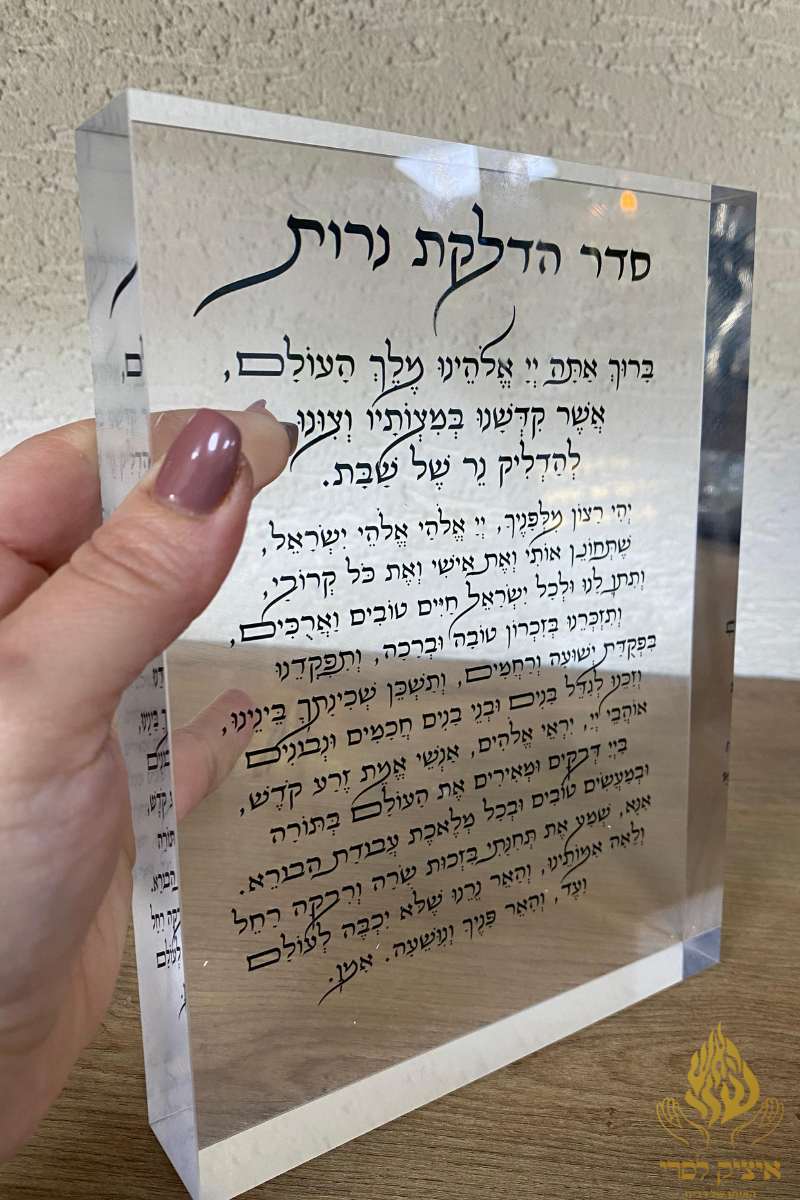 סדר הדלקת נרות
בָּרוּךְ אַתָּה יְיָ אֱלֹהֵינוּ מֶלֶךְ הָעוֹלָם,
אֲשֶׁר קִדְּשָׁנוּ בְּמִצְוֹתָיו וְצִוָּנוּ
לְהַדְלִיק נֵר שֶׁל שַׁבָּת.
יְהִי רָצוֹן מִלְּפָנֶיךָ, יְיָ אֱלֹהַי אֱלֹהֵי יִשְׂרָאֵל,
שֶׁתְּחוֹנֵן אוֹתִי וְאֶת אִישִׁי וְאֶת כֹּל קְרוֹבַי,
וְתִתֵּן לָנוּ וּלְכָל יִשְׂרָאֵל חַיִּים טוֹבִים וַאֲרֻכִּים,
וְתִזְכְּרֵנוּ בְּזִכְרוֹן טוֹבָה וּבְרָכָה, וְתִפְקְדֵנוּ
בִּפְקֻדַּת יְשׁוּעָה וְרַחֲמִים, וְתַשְׁכֵּן שְׁכִינָתְךָ בֵּינֵינוּ,
וְזַכֵּנוּ לְגַדֵּל בָּנִים וּבְנֵי בָנִים חֲכָמִים וּנְבוֹנִים
אוֹהֲבֵי יְיָ, יִרְאֵי אֱלֹהִים, אַנְשֵׁי אֱמֶת זֶרַע קֹדֶשׁ,
בַּייָ דְּבֵקִים וּמְאִירִים אֶת הָעוֹלָם בְּתּוֹרָה
וּבְמַעֲשִׂים טוֹבִים וּבְכָל מְלֶאכֶת עֲבוֹדַת הַבּוֹרֵא.
אָנָּא, שְׁמַע אֶת תְּחִנָּתִי בִּזְכוּת שָׂרָה וְרִבְקָה רָחֵל
וְלֵאָה אִמּוֹתֵינוּ, וְהָאֵר נֵרֵנוּ שֶׁלֹּא יִכְבֶּה לְעוֹלָם
וָעֶד, וְהָאֵר פָּנֶיךָ וְנִוָּשֵׁעָה. אָמֵן.
איציק לסרי